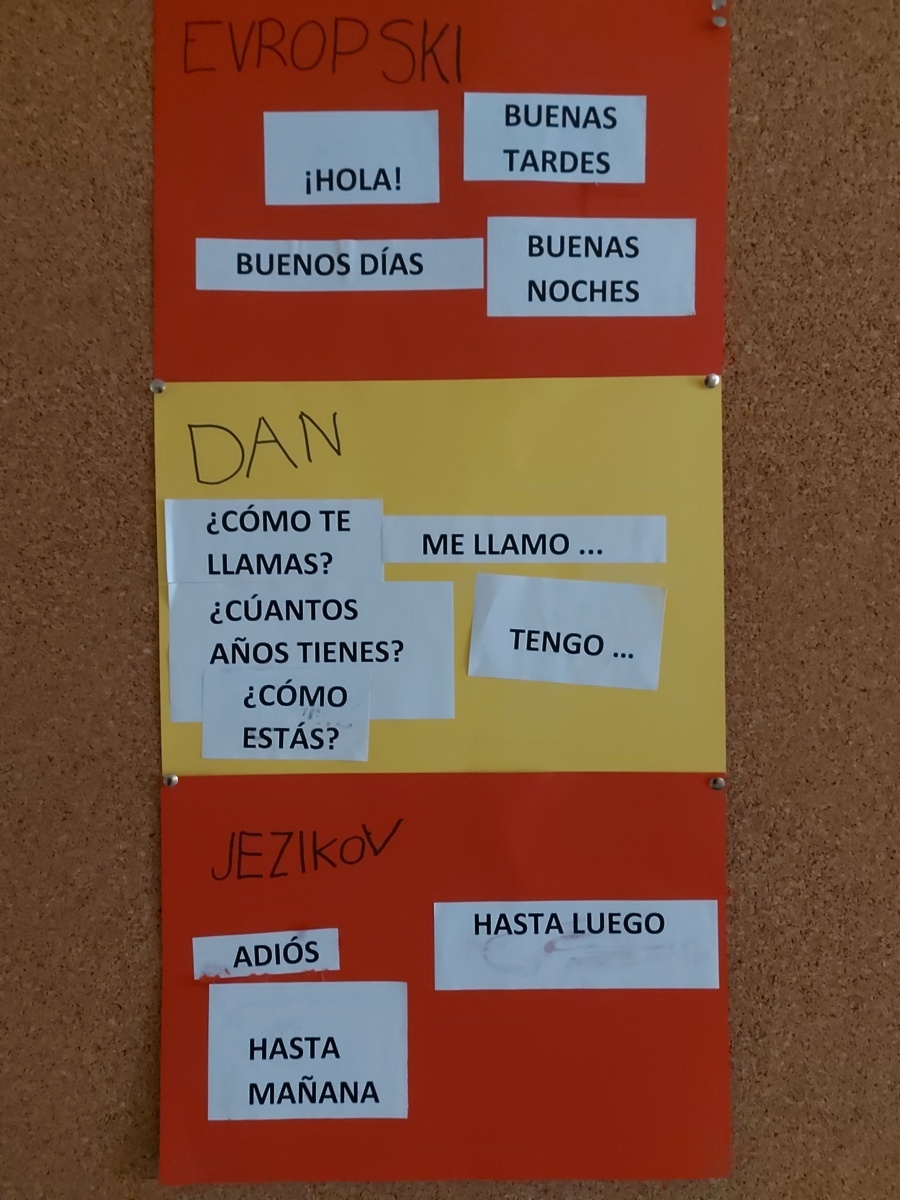 EVROPSKI
¡HOLA!
BUENAS
TARDES
BUENOS DÍAS
BUENAS
NOCHES
DAN
¿CÓMO TE
LLAMAS?
ME LLAMO ...
¿CÚANTOS
AÑOS TIENES?
TENGO ...
¿CÓMO
ESTÁS?
JEZIKOV
HASTA LUEGO
ADIÓS
HASTA
MAÑANA